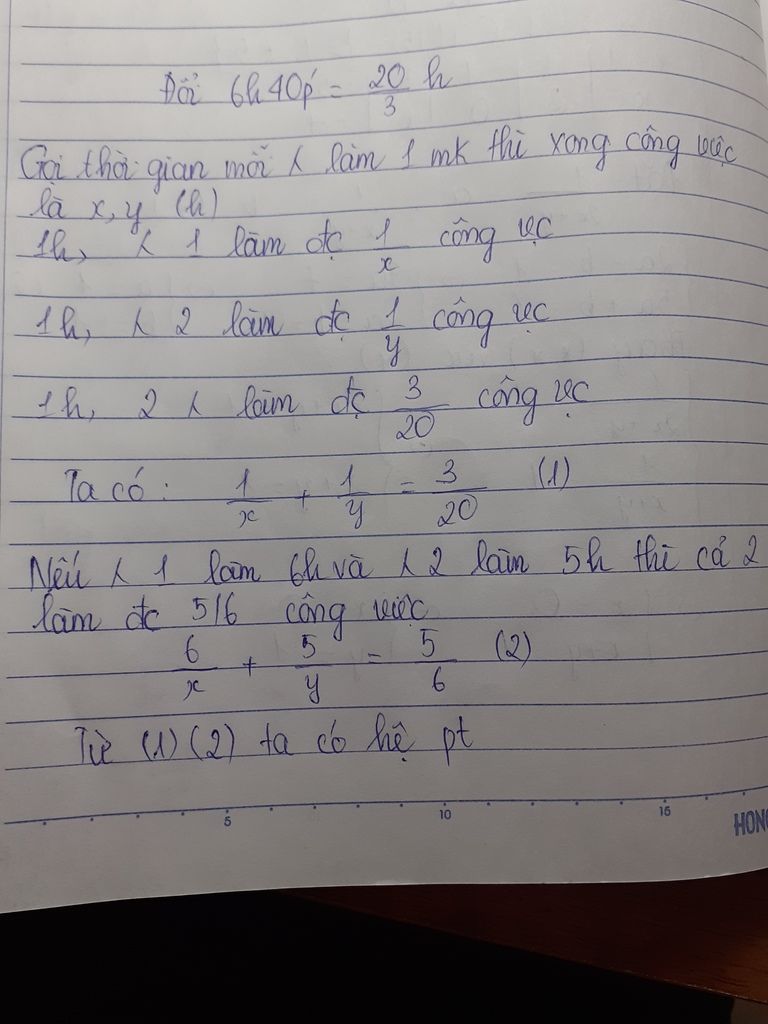 Đổi 6h40p' = 20/3 h
Gọi thời gian mỗi ʎ làm 1 mk thì xong công việc
là x, y (h)
1h, ʎ 1 làm đc 1/x công vc
1h, ʎ 2 làm đc 1/y công vc
1h, 2 ʎ làm đc 3/20 công vc
Ta có: 1/x + 1/y = 3/20 (1)
Nếu ʎ 1 làm 6h và ʎ 2 làm 5h thì cả 2
làm đc 5/6 công việc
6/x + 5/y = 5/6 (2)
Từ (1) (2) ta có hệ pt
5 10 15
HONG